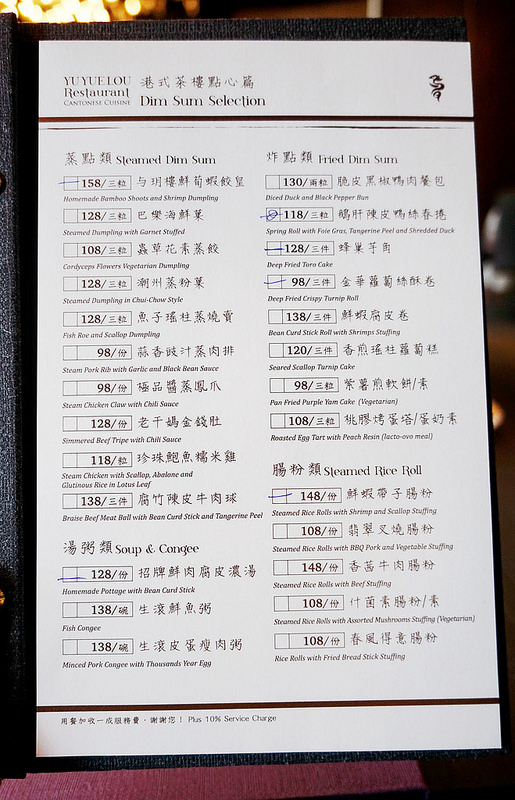 YU YUE LOU
Restaurant
CANTONESE CUISINE
港式茶樓點心篇
Dim Sum Selection
蒸點類 Steamed Dim Sum
158/三粒 与玥樓鮮荀蝦餃皇
Homemade Bamboo Shoots and Shrimp Dumpling
128/三粒 巴樂海鮮菓
Steamed Dumpling with Garnet Stuffed
108/三粒 蟲草花素蒸餃
Cordyceps Flowers Vegetarian Dumpling
128/三粒 潮州蒸粉菓
Steamed Dumpling in Chui-Chow Style
128/三粒 魚子瑤柱蒸燒賣
Fish Roe and Scallop Dumpling
98/份 蒜香豉汁蒸肉排
Steam Pork Rib with Garlic and Black Bean Sauce
98/份 極品醬蒸鳳爪
Steam Chicken Claw with Chili Sauce
128/份 老干媽金錢肚
Simmered Beef Tripe with Chili Sauce
118/粒 珍珠鮑魚糯米雞
Steam Chicken with Scallop, Abalone and
Glutinous Rice in Lotus Leaf
138/三件 腐竹陳皮牛肉球
Braise Beef Meat Ball with Bean Curd Stick and Tangerine Peel
湯粥類 Soup & Congee
128/份 招牌鮮肉腐皮濃湯
Homemade Pottage with Bean Curd Stick
138/碗 生滾鮮魚粥
Fish Congee
138/碗 生滾皮蛋瘦肉粥
Minced Pork Congee with Thousands Year Egg
炸點類 Fried Dim Sum
130/兩粒 脆皮黑椒鴨肉餐包
Diced Duck and Black Pepper Bun
118/三粒 鵝肝陳皮鴨絲春捲
Spring Roll with Foie Gras, Tangerine Peel and Shredded Duck
128/三件 蜂巢芋角
Deep Fried Toro Cake
98/三件 金華蘿蔔絲酥卷
Deep Fried Crispy Turnip Roll
138/三件 鮮蝦腐皮卷
Bean Curd Stick Roll with Shrimps Stuffing
120/三件 香煎瑤柱蘿蔔糕
Seared Scallop Turnip Cake
98/三粒 紫薯煎軟餅/素
Pan Fried Purple Yam Cake (Vegetarian)
108/三粒 桃膠烤蛋塔/蛋奶素
Roasted Egg Tart with Peach Resin (lacto-ovo meal)
腸粉類 Steamed Rice Roll
148/份 鮮蝦帶子腸粉
Steamed Rice Rolls with Shrimp and Scallop Stuffing
108/份 翡翠叉燒腸粉
Steamed Rice Rolls with BBQ Pork and Vegetable Stuffing
148/份 香茜牛肉腸粉
Steamed Rice Rolls with Beef Stuffing
108/份 什菌素腸粉/素
Steamed Rice Rolls with Assorted Mushrooms Stuffing (Vegetarian)
108/份 春風得意腸粉
Rice Rolls with Fried Bread Stick Stuffing
用餐加收一成服務費，謝謝您！ Plus 10% Service Charge